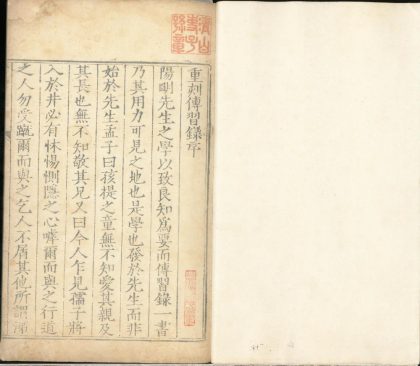 重刻傳習錄序
陽明先生之學以致良知爲要而傳習錄一書
乃其用力可見之地也是學也發於先生而非
始於先生孟子曰孩提之童無不知愛其親及
其長也無不知敬其兄又曰今人乍見孺子將
入於井必有怵惕惻隱之心嘑爾而與之行道
之人勿受蹴爾而與之乞人不屑其他所謂